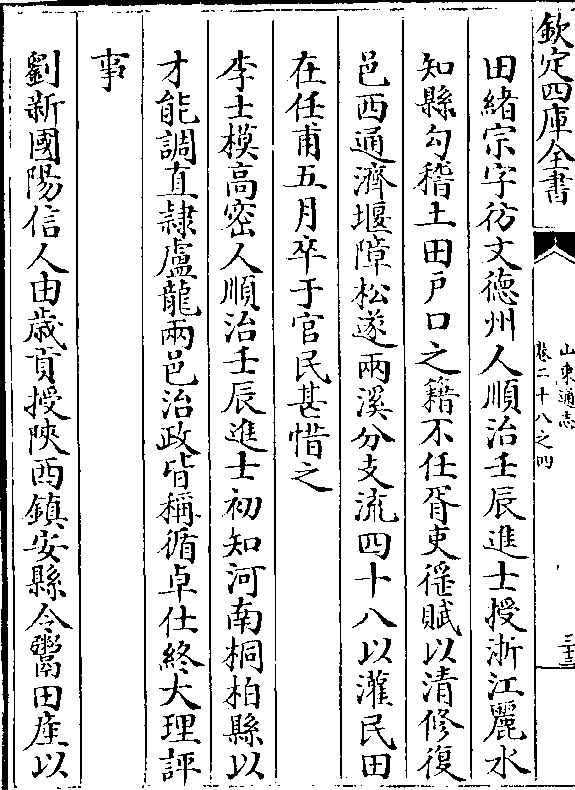 欽定四庫全書
山東通志
卷二十八之四
三十三
田緒宗字彷文德州人順治壬辰進士授浙江麗水
知縣勾稽土田戶口之籍不任胥吏徭賦以清修復
邑西通濟堰障松遂兩溪分支流四十八以灌民田
在任甫五月卒于官民甚惜之
李士模高密人順治壬辰進士初知河南桐柏縣以
才能調直隷盧龍兩邑治政皆稱循卓仕終大理評
事
劉新國陽信人由歳貢授陜西鎮安縣令鬻田産以